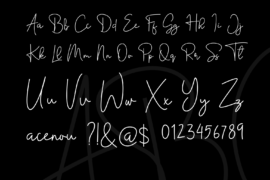 Aa Bb Cc Dd Ee Ff Gg Hh Ii Jj
Kk Ll Mm Nn Oo Pp Qq Rr Ss Tt
Uu Vv Ww Xx Yy Zz
acenou ?!&@$ 0123456789